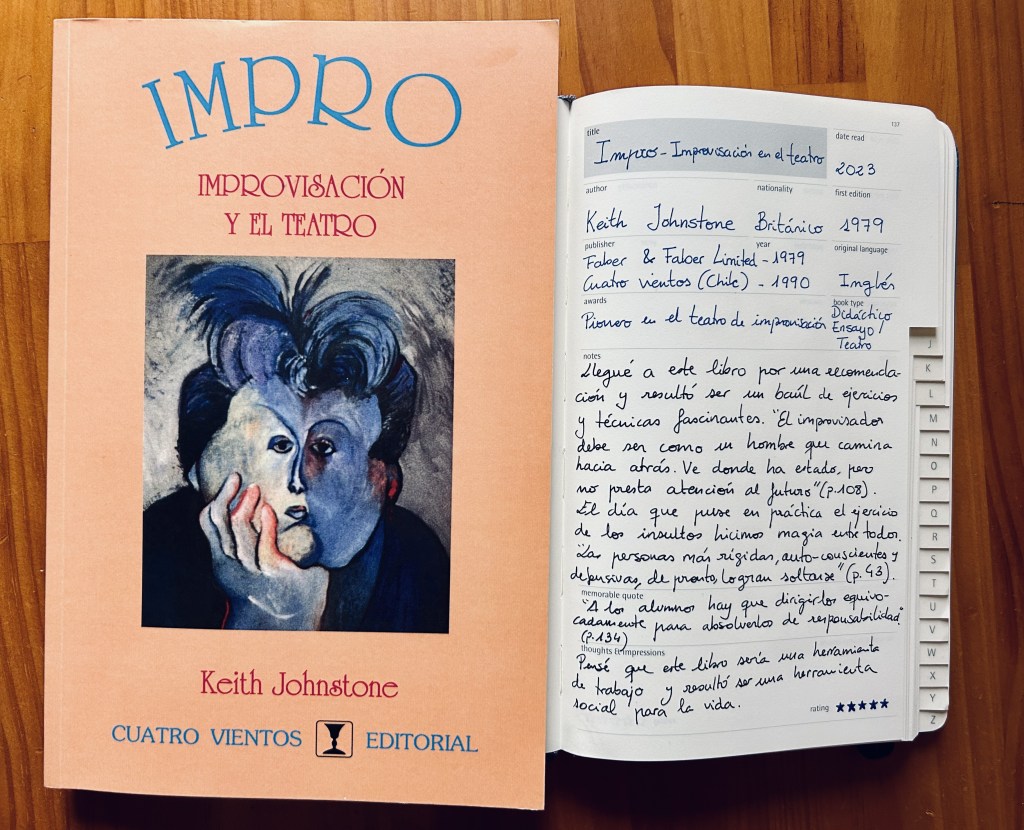 IMPRO
IMPROVISACIÓN
Y EL TEATRO
Keith Johnstone
CUATRO VIENTOS EDITORIAL
137
title
Impro - Improvisación en el teatro
date read
2023
author nationality first edition
Keith Johnstone Británico 1979
publisher year original language
Faber & Faber Limited - 1979
Cuatro vientos (Chile) - 1990 Inglés
awards book type
Pionero en el teatro de improvisación Didáctico
Ensayo /
Teatro
notes
Llegué a este libro por una recomenda-
ción y resultó ser un baúl de ejercicios
y técnicas fascinantes. "El improvisador
debe ser como un hombre que camina
hacia atrás. Ve donde ha estado, pero
no presta atención al futuro" (p.108).
El día que puse en práctica el ejercicio
de los insultos hicimos magia entre todos.
"Las personas más rígidas, auto-conscientes y
defensivas, de pronto, logran soltarse" (p.43).
memorable quote
"A los alumnos hay que dirigirlos equivo-
cadamente para absolverlos de responsabilidad."
(p.134)
thoughts & impressions
Pensé que este libro sería una herramienta
de trabajo y resultó ser una herramienta
social para la vida.
rating ★★★★★
J
K
L
M
N
O
P
Q
R
S
T
U
V
W
X
Y
Z